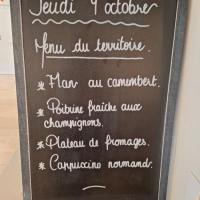 Jeudi 9 octobre
Menu du territoire.
* Flan au camembert.
* Poitrine fraîche aux
champignons.
* Plateau de fromages.
* Cappuccino normand.